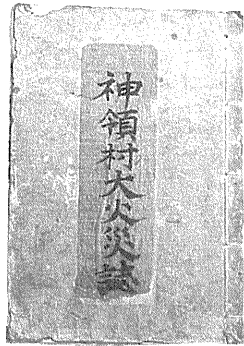 神領村大火災誌